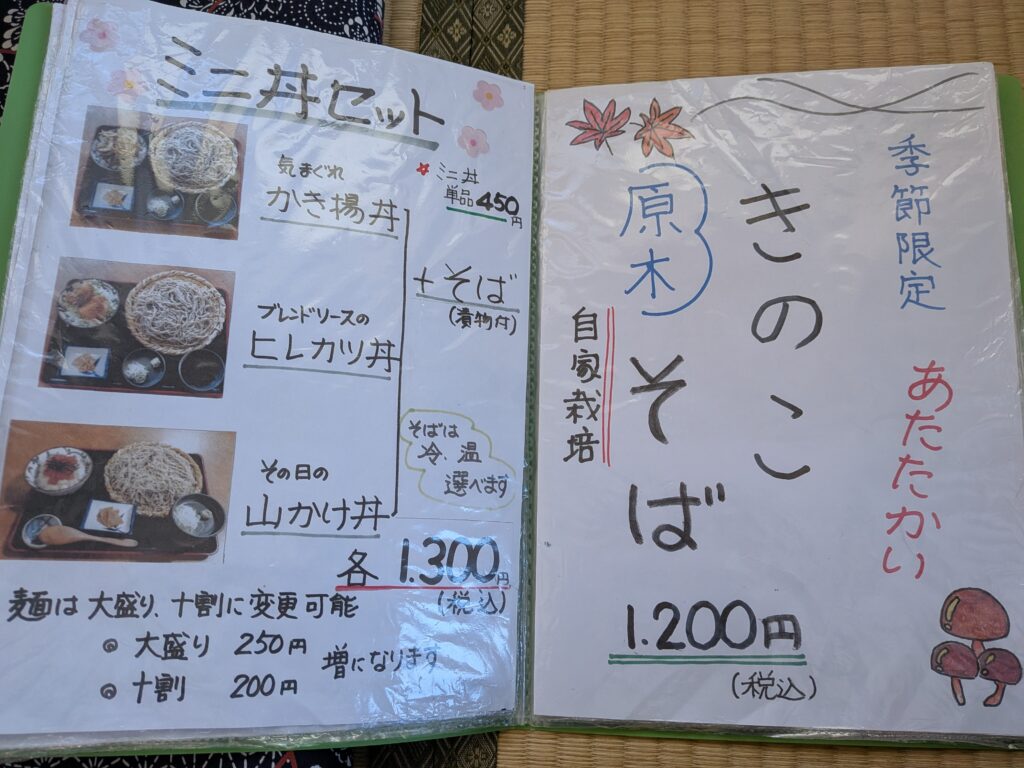 ミニ丼セット
気まぐれ
かき揚丼
ミニ丼
単品450円
ブレンドソースの
ヒレカツ丼
+そば
(漬物付)
その日の
山かけ丼
そばは
冷、温
選べます
各 1.300円
(税込)
麺は大盛り、十割に変更可能
◎ 大盛り 250円
◎ 十割 200円
増になります
季節限定
あたたかい
きのこ
(原木)
そば
自家栽培
1.200円
(税込)